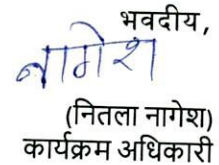 भवदीय,
नागेश
(नितला नागेश)
कार्यक्रम अधिकारी